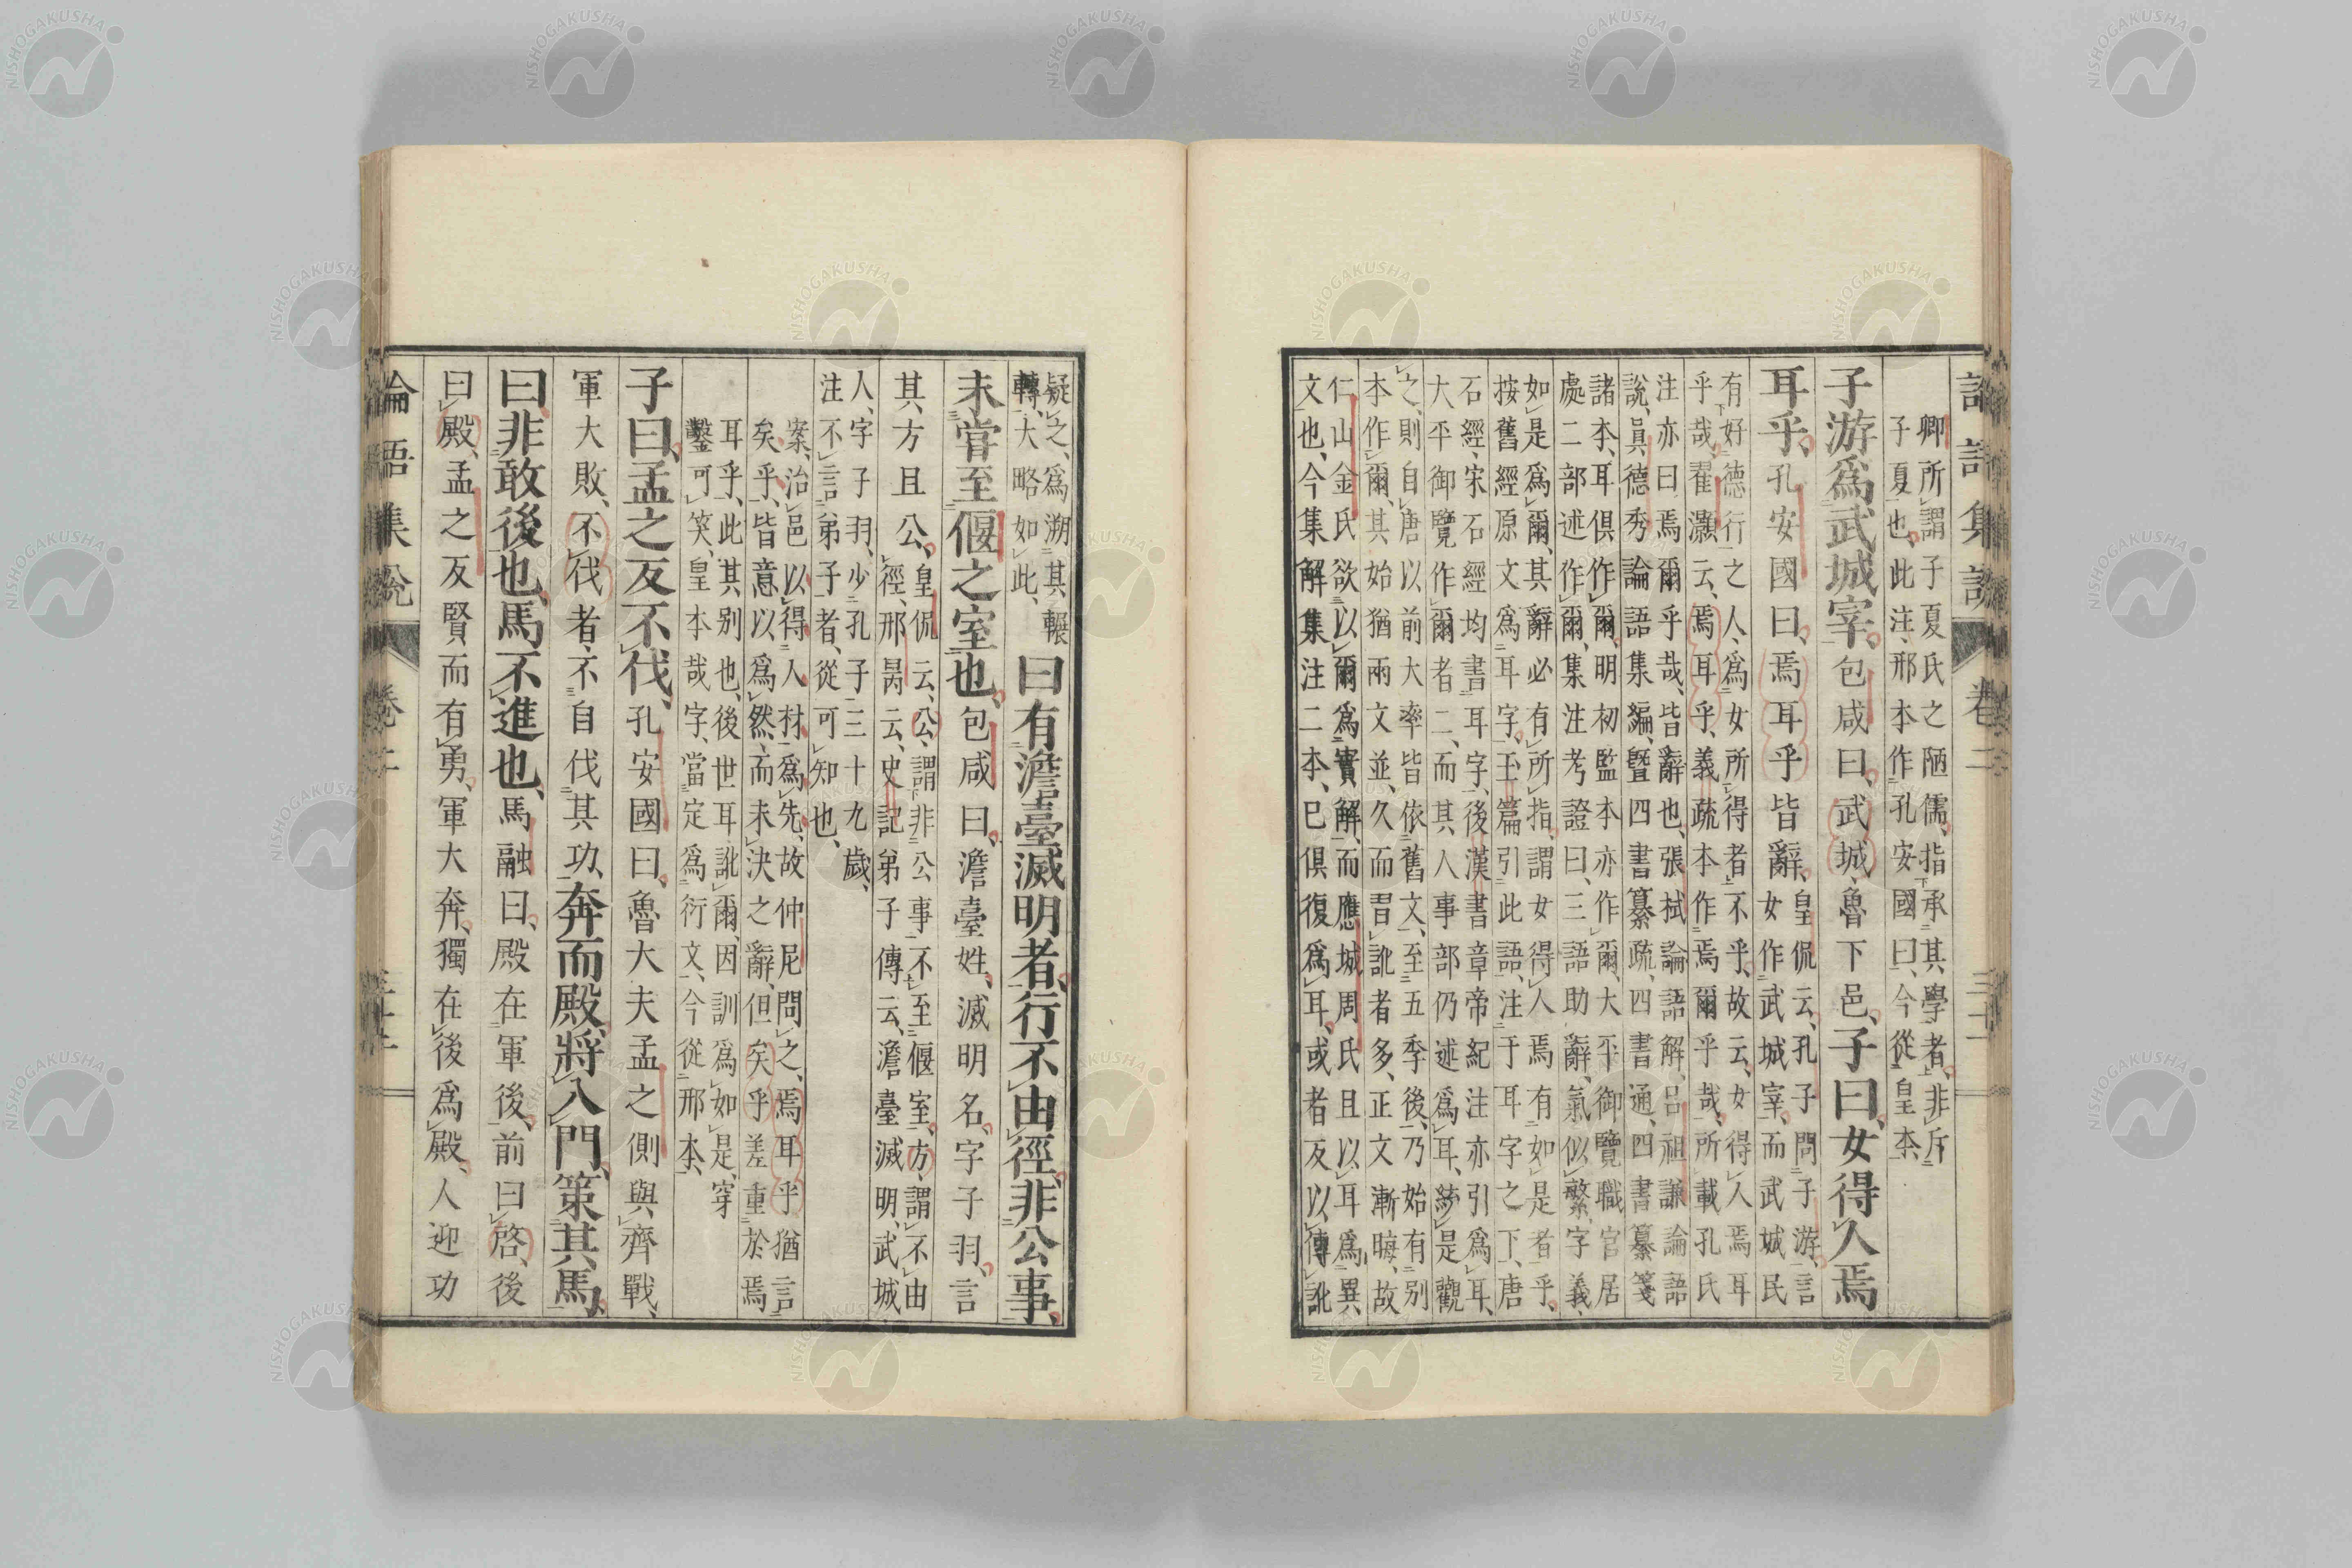 論語集説 卷二 三十二
卿所謂子夏氏之陋儒、指承其學者、非斥
子夏也、此注、邢本作孔安國曰、今從皇本、
子游爲武城宰。包咸曰、武城、魯下邑、子曰、女得人焉
耳乎、孔安國曰、焉耳乎皆辭、皇侃云、孔子問子游、言
女作武城宰、而武城民
有好德行之人、爲女所得者不乎、故云、女得人焉耳
乎哉、翟灝云、焉耳乎、義疏本作焉爾乎哉、所載孔氏
注亦曰焉爾乎哉、皆辭也、張栻論語解、呂祖謙論語
説、眞德秀論語集編、曁四書纂疏、四書通、四書纂箋
諸本、耳俱作爾、明初監本亦作爾、大平御覽職官居
處二部述作爾、集注考證曰、三語助辭、氣似繁、字義、
如是爲爾、其辭必有所指、謂女得人焉有如是者乎、
按舊經原文爲耳字、玉篇引此語、注于耳字之下、唐
石經、宋石經均書耳字、後漢書章帝紀注亦引爲耳、
大平御覽作爾者二、而其人事部仍述爲耳、是觀
之、則自唐以前大率皆依舊文、至五季後、乃始有別
本作爾、其始猶兩文並、久而習訛者多、正文漸晦、故
仁山金氏欲以爾爲實解、而應城周氏且以耳爲異、
文也、今集解集注二本、已俱復爲耳、或者反以傳訛
疑之、爲溯其輾
轉、大略如此、曰有澹臺滅明者、行不由徑、非公事、
未嘗至偃之室也、包咸曰、澹臺姓、滅明名、字子羽、言
其方且公、皇侃云、公、謂非公事不至偃室、方、謂不由
徑、邢昺云、史記弟子傳云、澹臺滅明、武城
人、字子羽、少孔子三十九歲、
注不言弟子者、從可知也、
案、治邑以得人材爲先、故仲尼問之、焉耳乎猶言
矣乎、皆意以爲然、而未決之辭、但矣乎差重於焉
耳乎、此其別也、後世耳訛爾、因訓爲如是、穿
鑿可笑、皇本哉字、當定爲衍文、今從邢本、
子曰、孟之反不伐、孔安國曰、魯大夫孟之側與齊戰、
軍大敗、不伐者、不自伐其功、奔而殿、將入門、策其馬、
曰、非敢後也、馬不進也、馬融曰、殿在軍後、前曰啓、後
曰殿、孟之反賢而有勇、軍大奔、獨在後爲殿、人迎功
論語集説 卷二
NISHOGAKUSHA